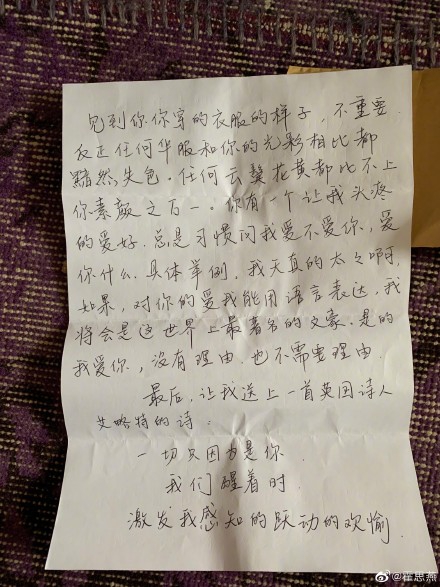 见到你你穿的衣服的样子，不重要
反正任何华服和你的光彩相比都
黯然失色．任何云鬓花黄都比不上
你素颜之百一。你有一个让我头疼
的爱好．总是习惯问我爱不爱你，爱
你什么．具体举例．我天真的太々啊，
如果，对你的爱我能用语言表达，我
将会是这世界上最著名的文豪．是的
我爱你，没有理由．也不需要理由．
最后．让我送上一首英国诗人
艾略特的诗：
一切只因为是你．
我们醒着时．
激发我感知的跃动的欢愉．
@霍思燕